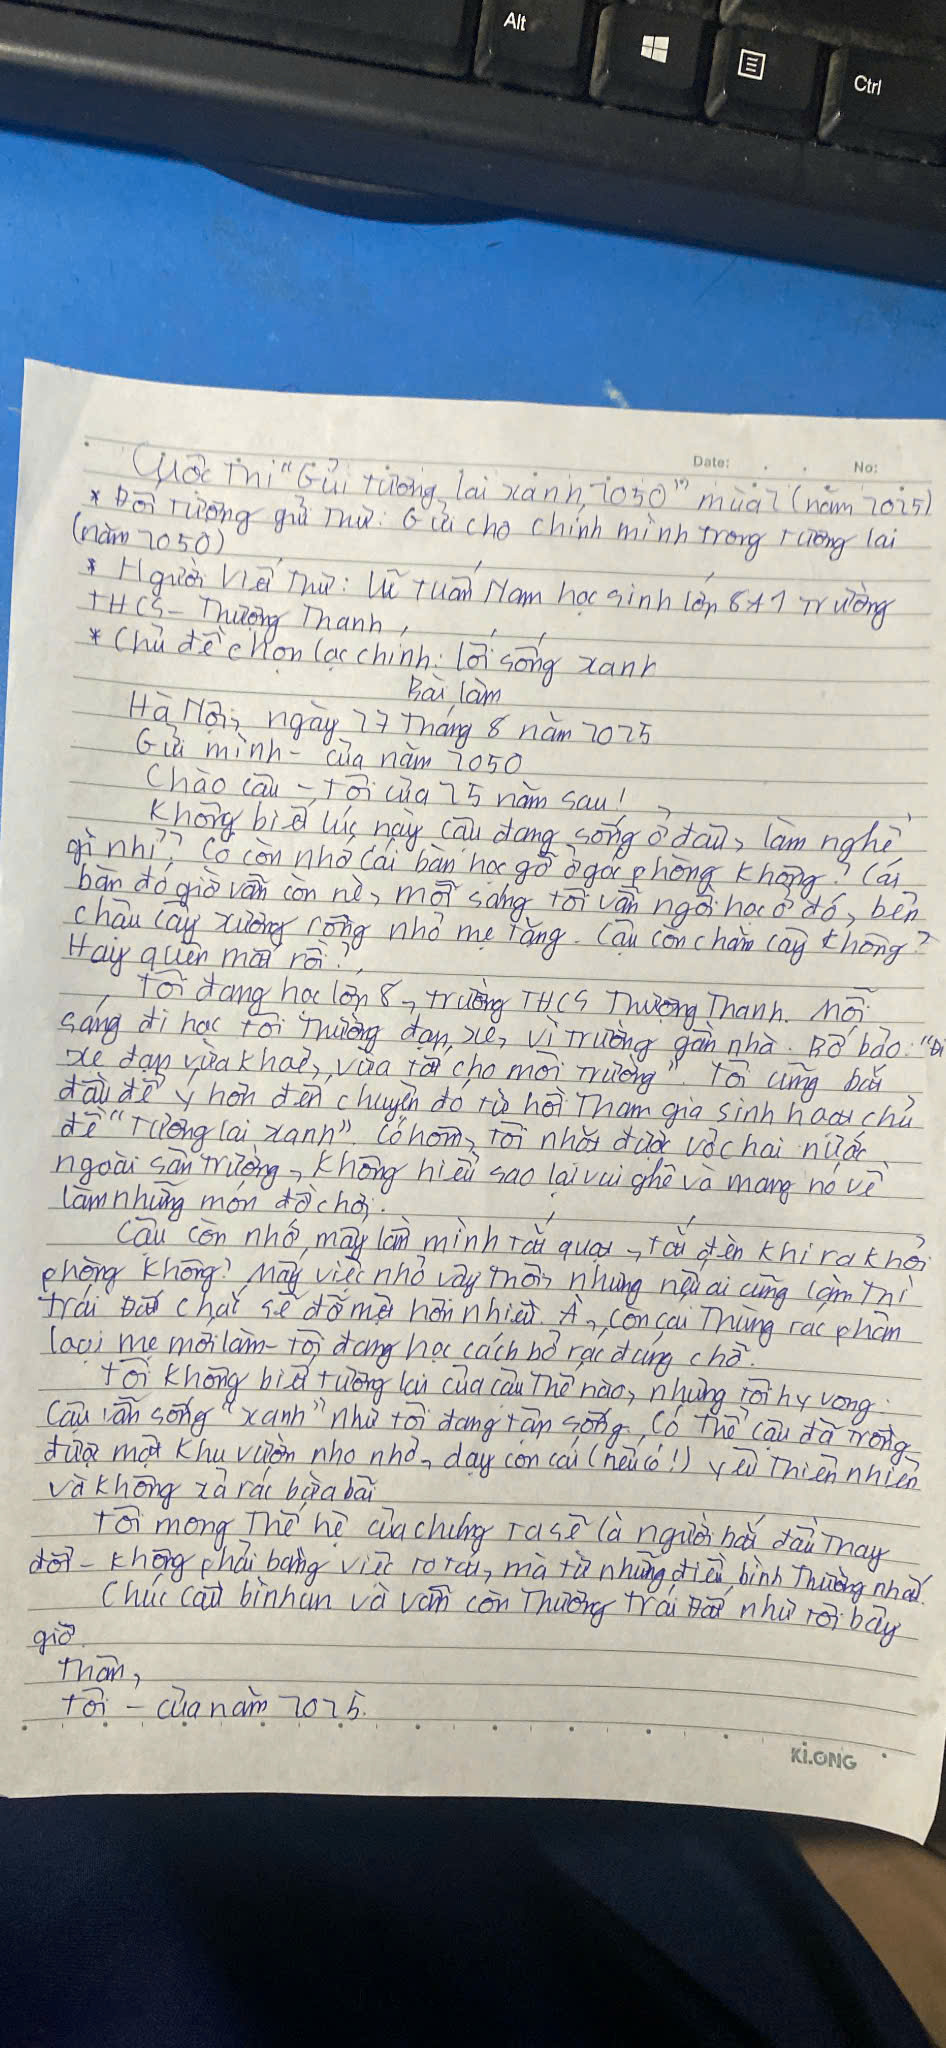 Alt
Ctrl
Date:
No:
Cuộc Thi "Gửi tương lai xanh 2050" mùa 2 (năm 2025)
* Đối tượng gửi Thư: Gửi cho chính mình trong tương lai
(năm 2050)
* Người viết Thư: Vũ Tuấn Nam học sinh lớp 8A1 Trường
THCS - Thượng Thanh
* Chủ đề chọn lọc chính: lối sống xanh
Bài làm
Hà Nội, ngày 27 Tháng 8 năm 2025
Gửi mình - của năm 2050
Chào cậu - Tôi của 25 năm sau!
Không biết lúc này cậu đang sống ở đâu, làm nghề
gì nhỉ? Có còn nhớ cái bàn học gỗ ở góc phòng không? Cái
bàn đó giờ vẫn còn nè, mỗi sáng tôi vẫn ngồi học ở đó, bên
chậu cây xương rồng nhỏ mẹ tặng. Cậu còn chăm cây không?
Hay quên mất rồi?
Tôi đang học lớp 8, trường THCS Thượng Thanh. Mỗi
sáng đi học tôi Thường đạp xe, vì trường gần nhà. Bố bảo: "Đi
xe đạp vừa khoẻ, vừa tốt cho môi trường". Tôi cũng bắt
đầu để ý hơn đến chuyện đó từ hồi Tham gia sinh hoạt chủ
đề "Tương lai xanh". Có hôm, tôi nhặt được vỏ chai nước
ngoài sân trường, không hiểu sao lại vui ghê và mang nó về
làm những món đồ chơi.
Cậu còn nhớ mấy lần mình tắt quạt, tắt đèn khi ra khỏi
phòng không? Mấy việc nhỏ vậy Thôi, nhưng nếu ai cũng làm Thì
trái Đất chắc sẽ đỡ mệt hơn nhiều. À, còn cái Thùng rác phân
loại mẹ mới làm - tôi đang học cách bỏ rác đúng chỗ.
Tôi không biết tương lai của cậu Thế nào, nhưng tôi hy vọng
cậu vẫn sống "xanh" như tôi đang tập sống. Có Thể cậu đã Trồng
được một khu vườn nho nhỏ, dạy con cái (nếu có!) yêu Thiên nhiên
và không xả rác bừa bãi
Tôi mong Thế hệ của chúng ta sẽ là người bắt đầu Thay
đổi - không phải bằng việc to tát, mà từ những điều bình Thường nhất.
Chúc cậu bình an và vẫn còn Thương trái Đất như tôi bây
giờ.
Thân,
Tôi - của năm 2025.
KLONG